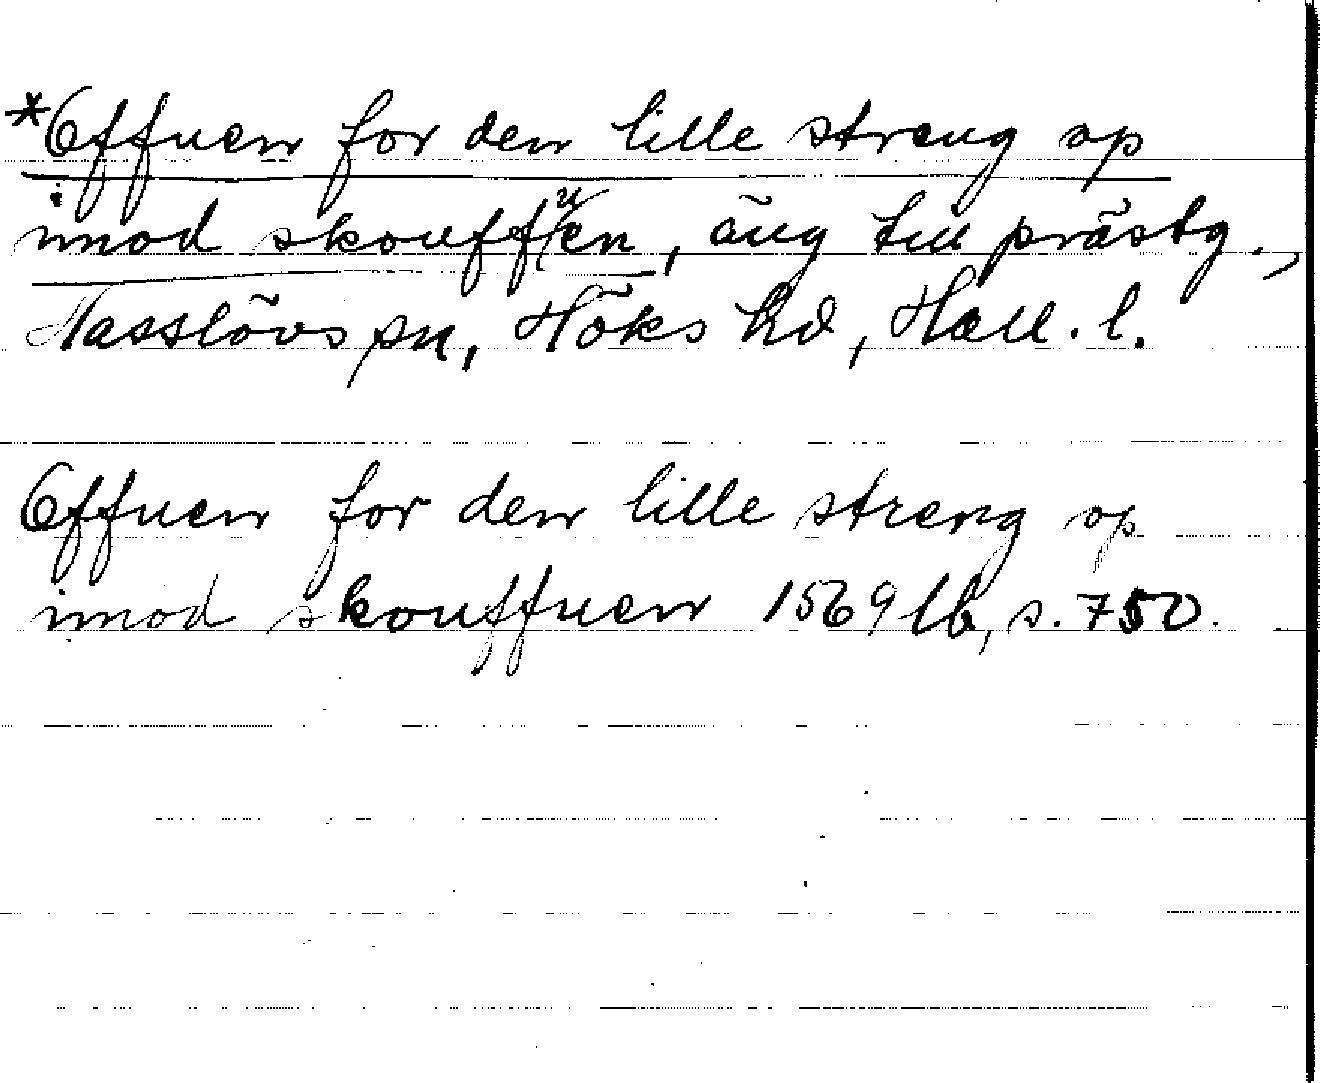 *Offuen for den lille streng op
imod skouffuen, äng till prästg.,
Hasslövs sn, Höks hd, Hall. l.
Offuen for den lille streng op
imod skouffuen 1569 lb, s. 750.